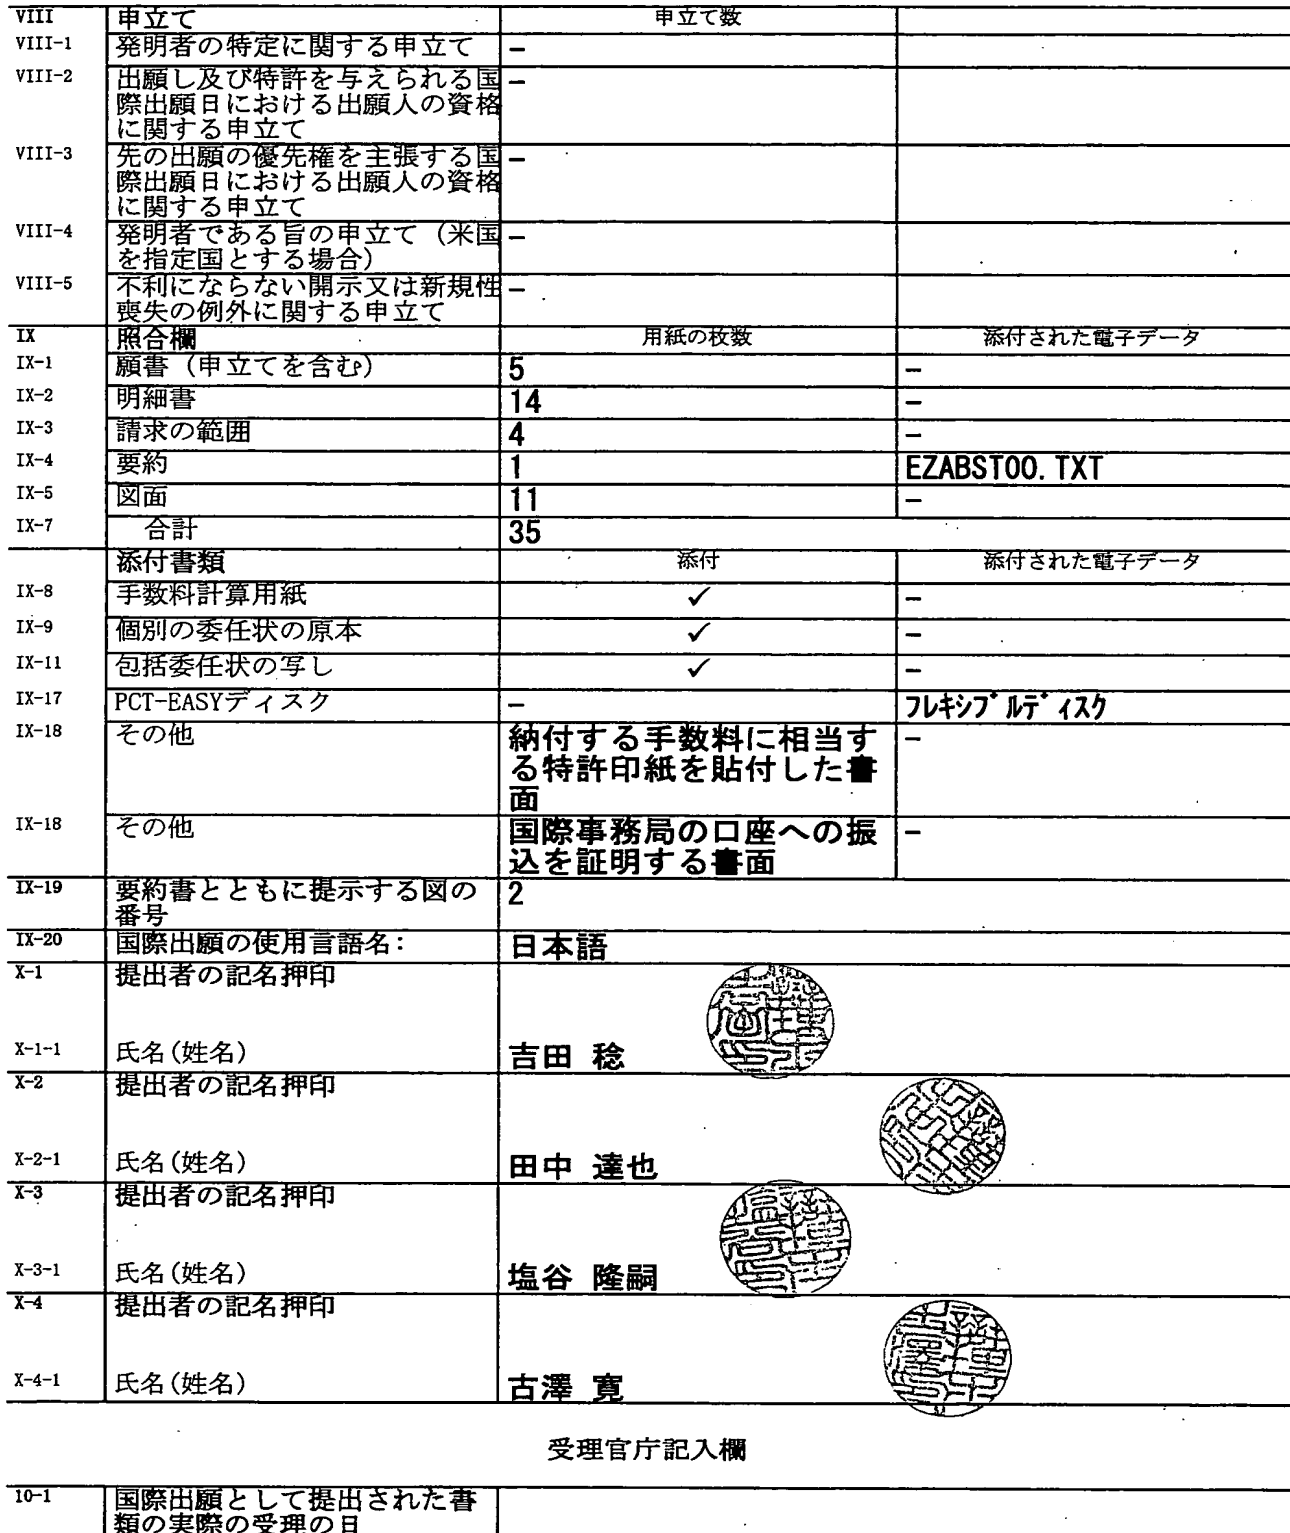 VIII 申立て 申立て数
VIII-1 発明者の特定に関する申立て –
VIII-2 出願し及び特許を与えられる国 –
際出願日における出願人の資格
に関する申立て
VIII-3 先の出願の優先権を主張する国 –
際出願日における出願人の資格
に関する申立て
VIII-4 発明者である旨の申立て（米国 –
を指定国とする場合）
VIII-5 不利にならない開示又は新規性 –
喪失の例外に関する申立て
IX 照合欄 用紙の枚数 添付された電子データ
IX-1 願書（申立てを含む） 5 –
IX-2 明細書 14 –
IX-3 請求の範囲 4 –
IX-4 要約 1 EZABST00.TXT
IX-5 図面 11 –
IX-7 合計 35
添付書類 添付 添付された電子データ
IX-8 手数料計算用紙 ✓ –
IX-9 個別の委任状の原本 ✓ –
IX-11 包括委任状の写し ✓ –
IX-17 PCT-EASYディスク – フレキシブルディスク
IX-18 その他 納付する手数料に相当す –
る特許印紙を貼付した書
面
IX-18 その他 国際事務局の口座への振 –
込を証明する書面
IX-19 要約書とともに提示する図の 2
番号
IX-20 国際出願の使用言語名: 日本語
X-1 提出者の記名押印
X-1-1 氏名(姓名) 吉田 稔
X-2 提出者の記名押印
X-2-1 氏名(姓名) 田中 達也
X-3 提出者の記名押印
X-3-1 氏名(姓名) 塩谷 隆嗣
X-4 提出者の記名押印
X-4-1 氏名(姓名) 古澤 寛
受理官庁記入欄
10-1 国際出願として提出された書
類の実際の受理の日